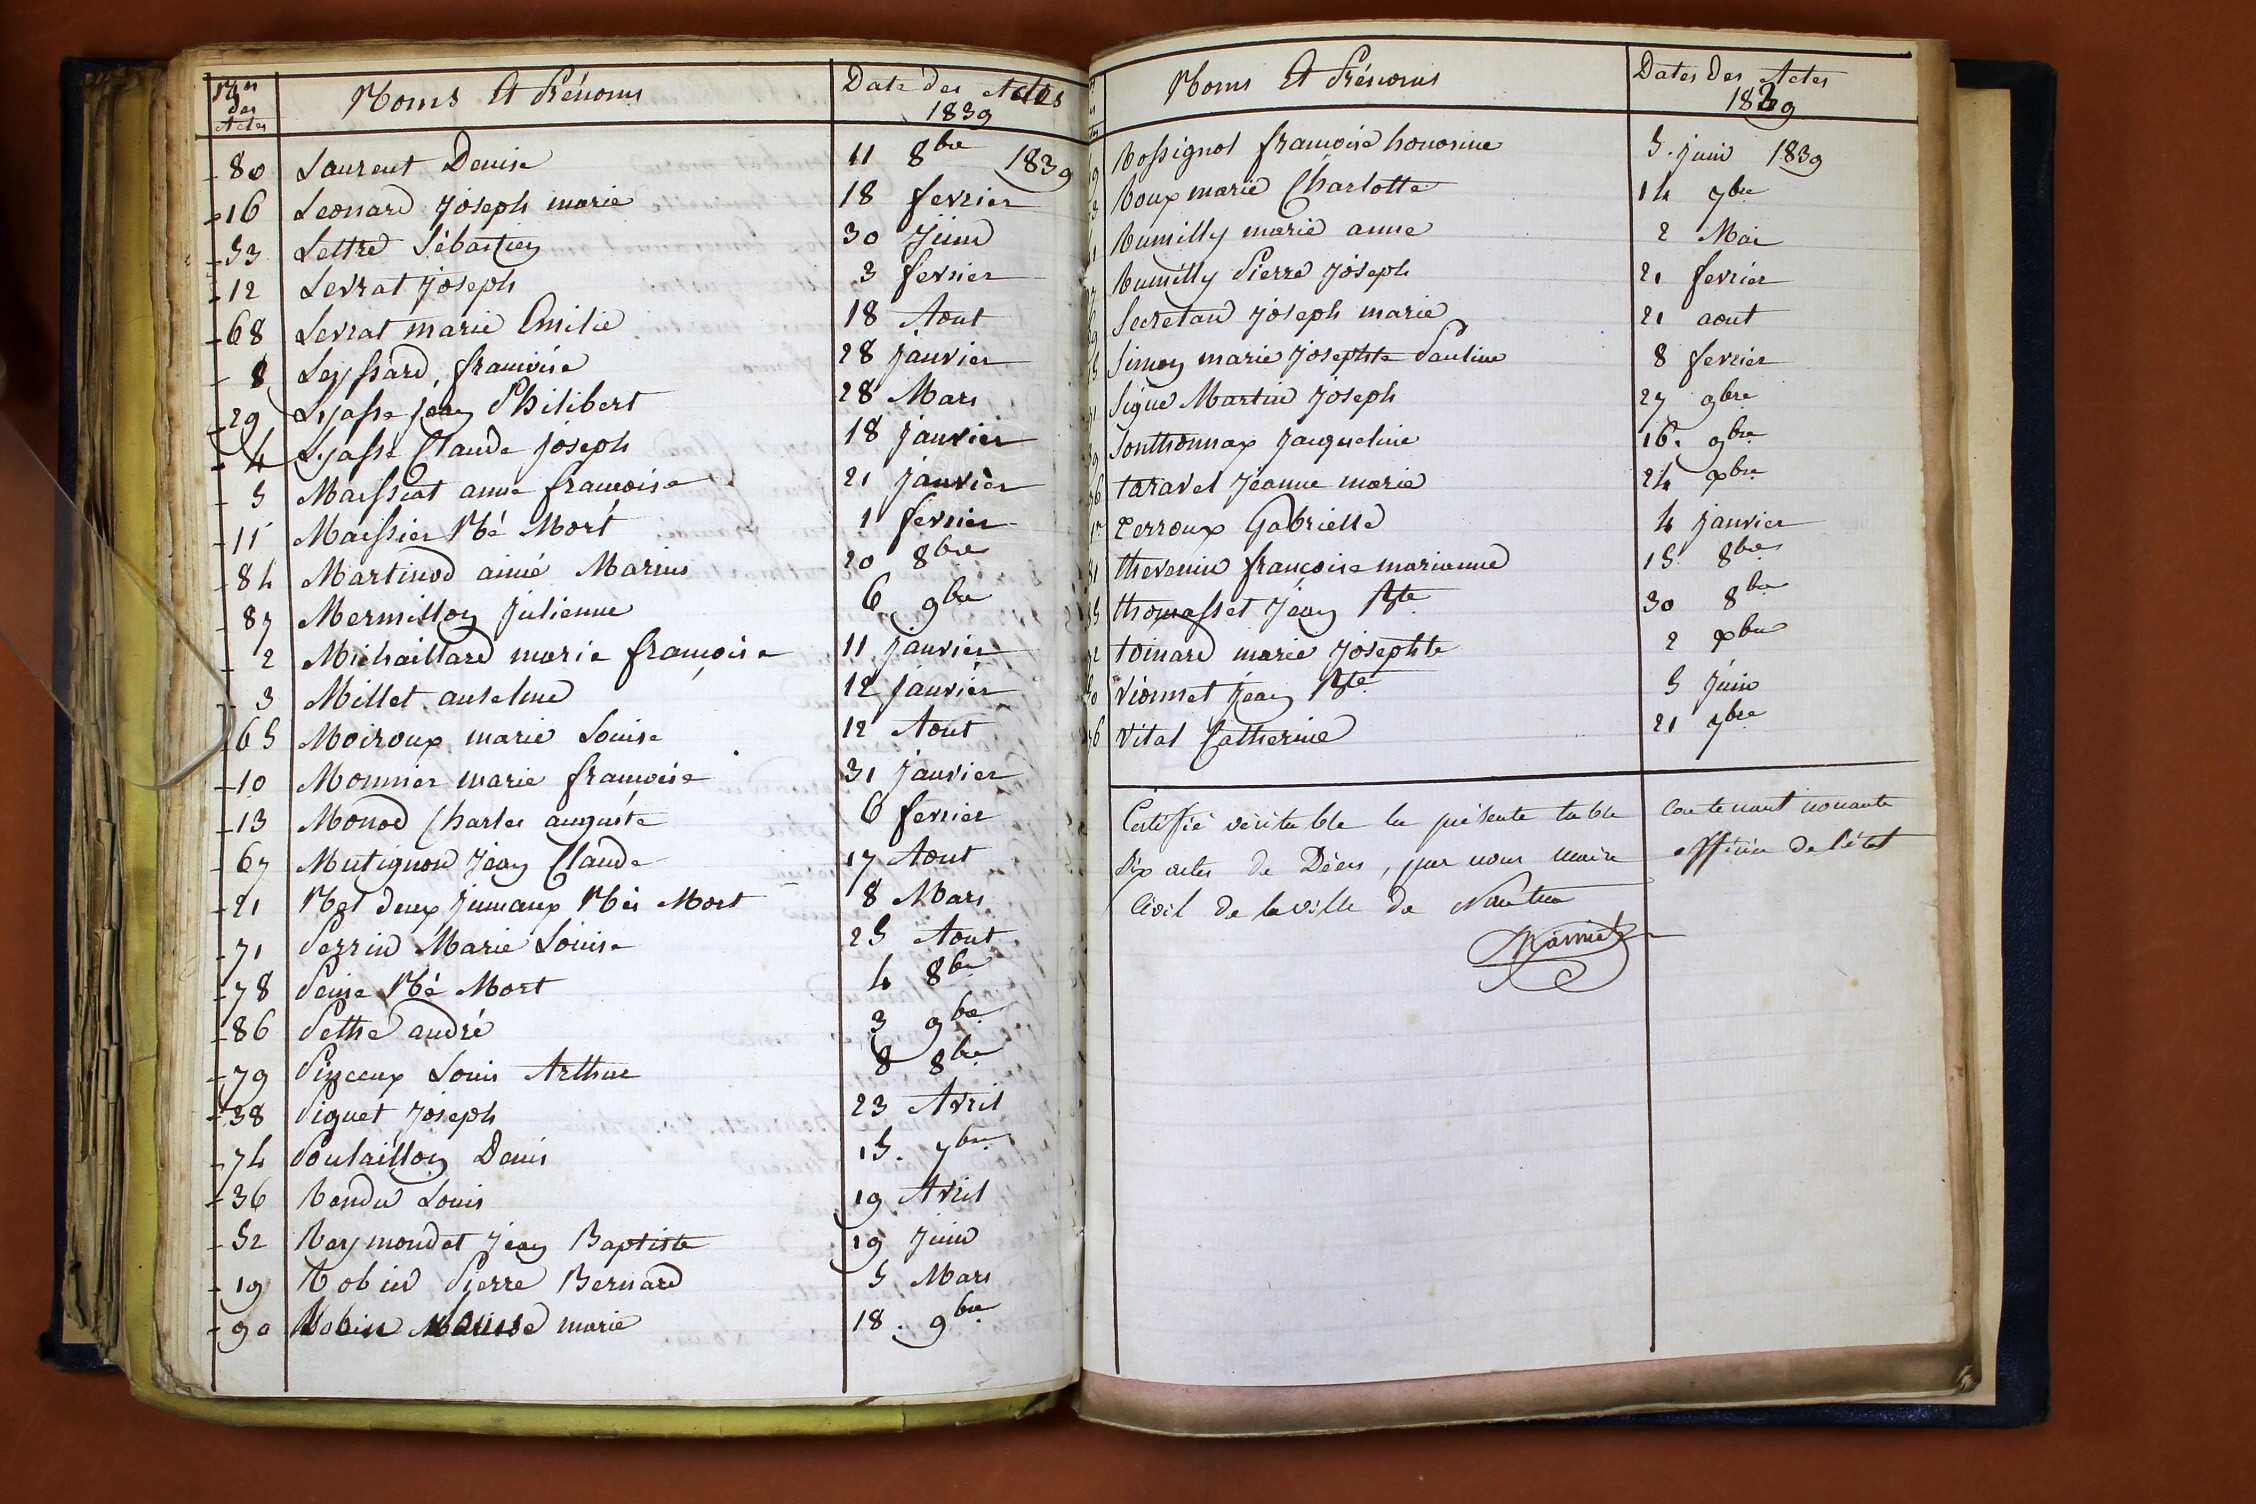 Nos des Actes Noms Et Prénoms Date des Actes 1839
80 Laurent Denise 11 8bre 1839
16 Leonard joseph marie 18 fevrier
53 Lettre Sébastien 30 Juin
12 Levrat joseph 3 fevrier
68 Levrat marie Emilie 18 Aout
8 Leyssard françoise 28 janvier
29 Lyasse jean Philibert 28 Mars
4 Lyasse Claude joseph 18 janvier
5 Maissiat anne françoise 21 janvier
11 Maissier Né Mort 1 fevrier
84 Martinod aimé Marius 20 8bre
87 Mermillon Julienne 6 9bre
2 Michaillard marie françoise 11 janvier
3 Millet anseline 12 janvier
65 Moiroux marie Louise 12 Aout
10 Monnier marie françoise 31 janvier
13 Monod Charles auguste 6 fevrier
67 Mutignon Jean Claude 17 Aout
21 deux Jumaux Nés Mort 8 Mars
71 Perrin Marie Louise 25 Aout
78 Né Mort 4 8bre
86 andré 3 9bre
79 Louis Arthur 8 8bre
38 Piquet Joseph 23 Avril
74 Poulaillon Denis 15. 7bre
36 Rendu Louis 19 Avril
52 Raymondet Jean Baptiste 19 Juin
19 Robin Pierre Bernard 5 Mars
90 Robin marie 18. 9bre
Noms Et Prénoms Dates Des Actes 1839
Rossignol françoise honorine 5. juin 1839
Roux marie Charlotte 14 7bre
Rumilly marie anne 2 Mai
Rumilly Pierre Joseph 21 fevrier
Secretan joseph marie 21 aout
Simon marie josephte Pauline 8 fevrier
Sigue Martin Joseph 27 9bre
Sonthonnax Jacqueline 16. 9bre
taravel Jeanne marie 24 xbre
terroux Gabrielle 4 janvier
thevenin françoise marianne 15 8bre
thomasset Jean Bte 30 8bre
toinard marie Josephte 2 xbre
Vionnet Jean Bte 5 Juin
Vital Catherine 21 7bre
Certifié véritable la présente table contenant nonante
Dix actes de Décès, par nous maire officier de l'état
Civil de la ville de Nantua